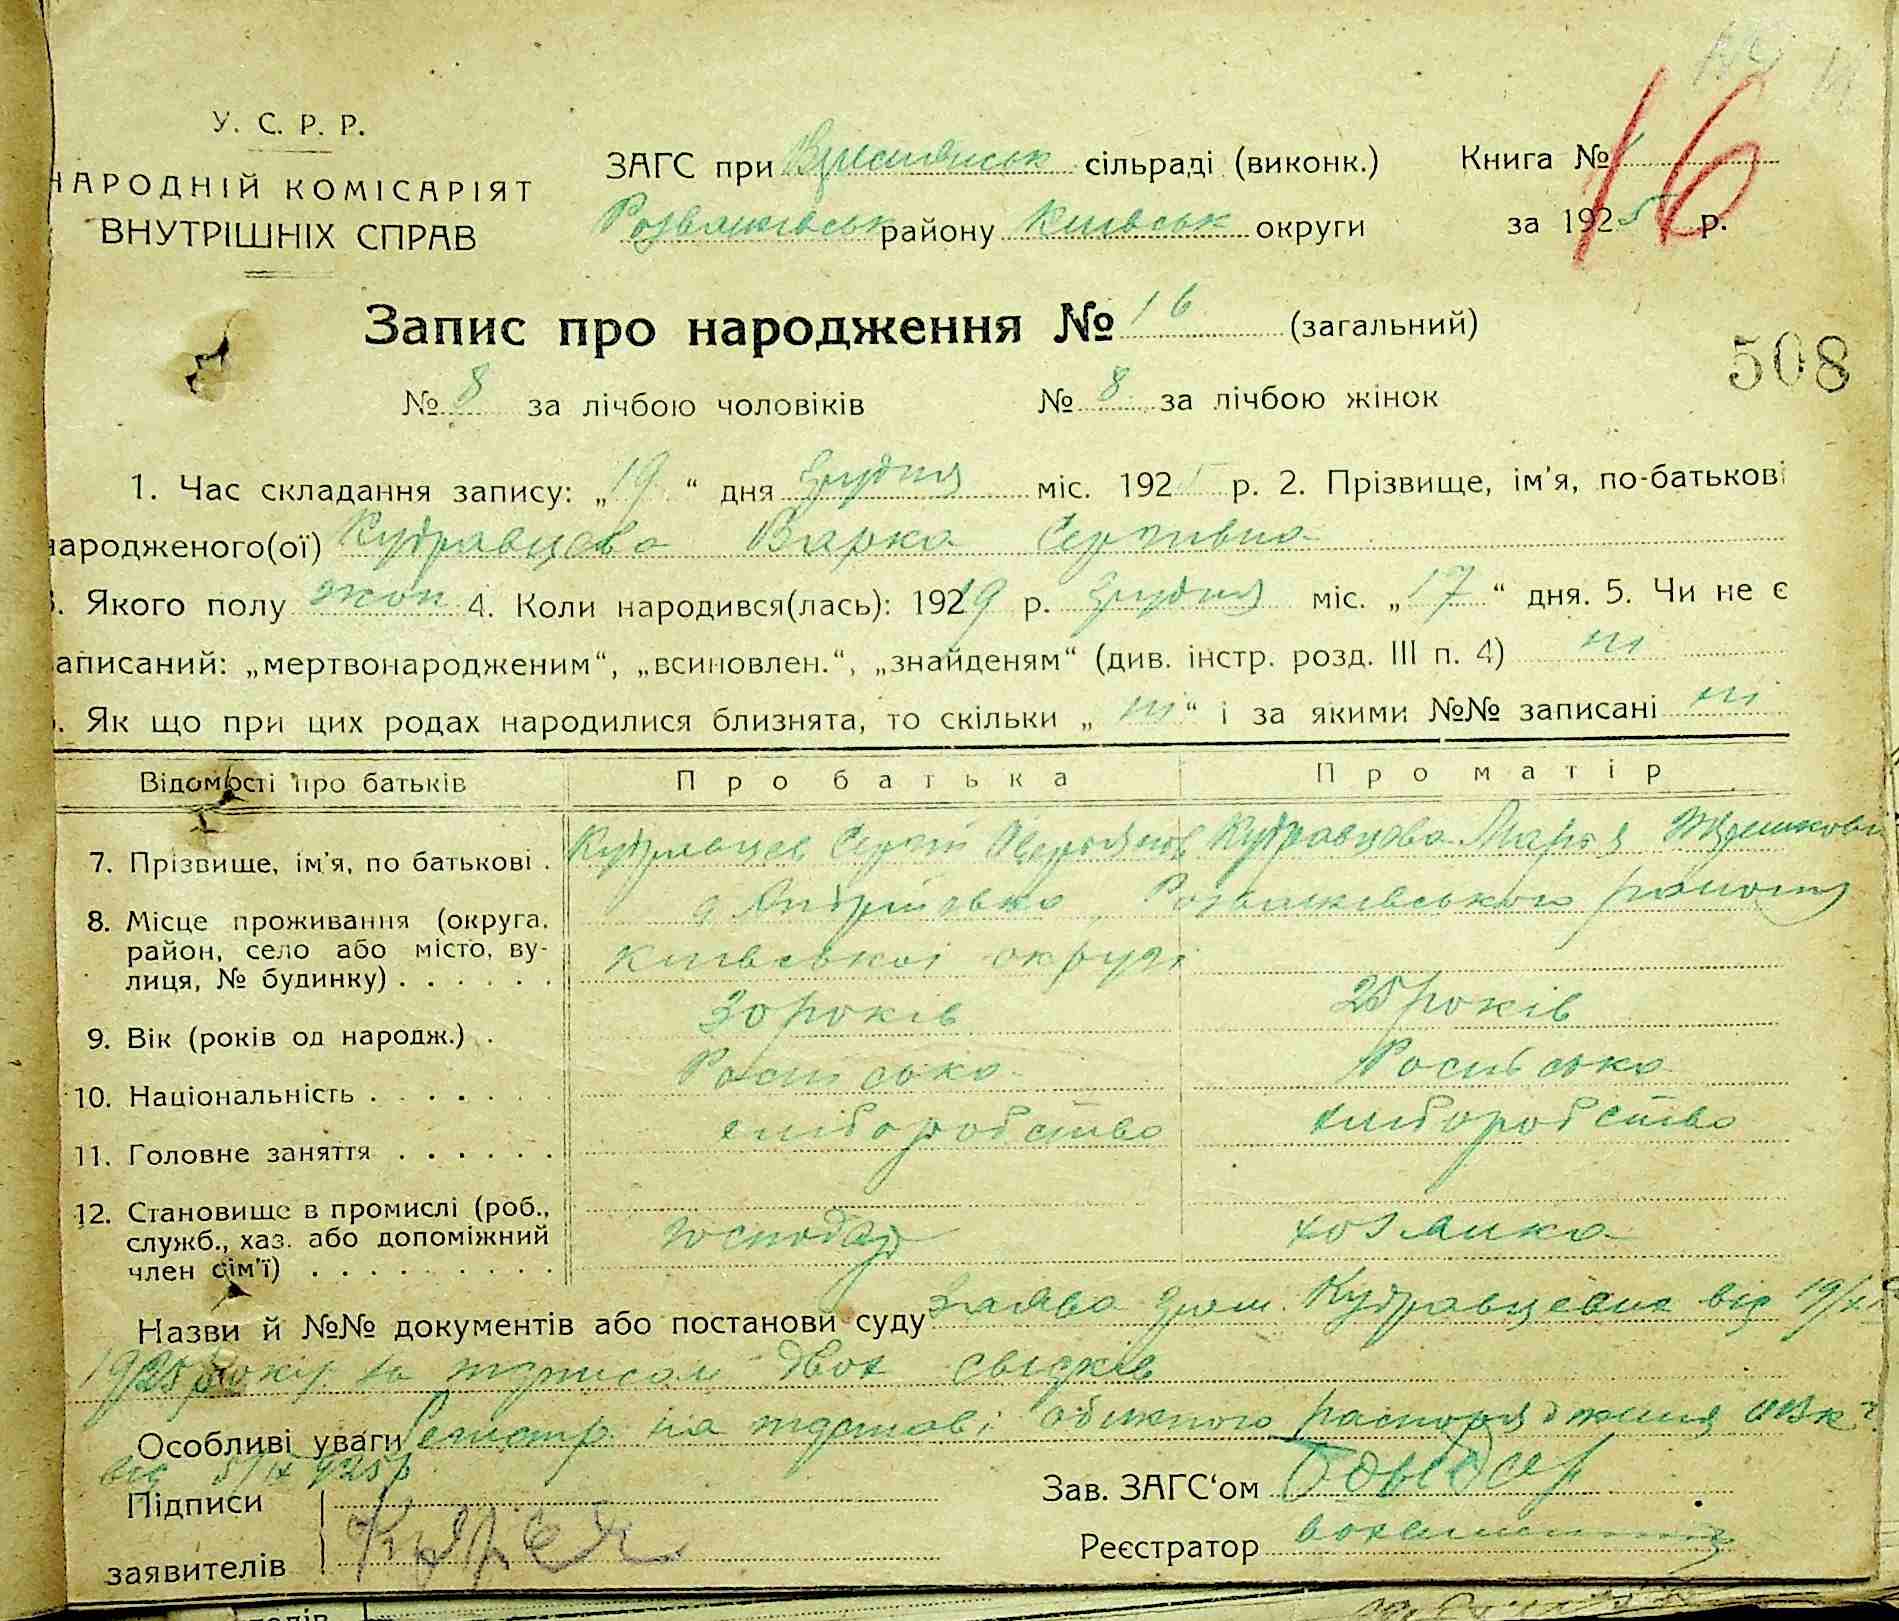 У. С. Р. Р.
НАРОДНІЙ КОМІСАРІЯТ
ВНУТРІШНІХ СПРАВ
ЗАГС при сільраді (виконк.)
Розважівськ району Київськ округи
Книга № 1
за 1925 р.
16
Запис про народження № 16 (загальний)
508
№ 8 за лічбою чоловіків № 8 за лічбою жінок
1. Час складання запису: „19“ дня Грудня міс. 1925 р. 2. Прізвище, ім'я, по-батькові
народженого(ої) Кудравцева Варка Сергіївна
3. Якого полу жон 4. Коли народився(лась): 19219 р. Грудня міс. „17“ дня. 5. Чи не є
аписаний: „мертвонародженим“, „всиновлен.“, „знайденям“ (див. інстр. розд. III п. 4) ні
. Як що при цих родах народилися близнята, то скільки „ні“ і за якими №№ записані ні
Відомості про батьків Про батька Про матір
7. Прізвище, ім'я, по батькові . Кудравцев Сергій Кудравцова Марья
8. Місце проживання (округа, район, село або місто, вулиця, № будинку) . . . . . .
с Андріївка Розважівського району
Київської округи
9. Вік (років од народж.) . 30 років 25 років
10. Національність . . . . . . . Російська Російська
11. Головне заняття . . . . . . хліборобство хліборобство
12. Становище в промислі (роб., служб., хаз. або допоміжний член сім'ї) . . . . . . . . . господар хозяйка
Назви й №№ документів або постанови суду Заява гром. Кудравцева від 19/XII
1925 року за підписом двох свідків
Особливі уваги Регистр. на підставі обіжного распорядження ОВК
від 5/IX 925 р
Підписи
заявителів
Зав. ЗАГС'ом
Реєстратор